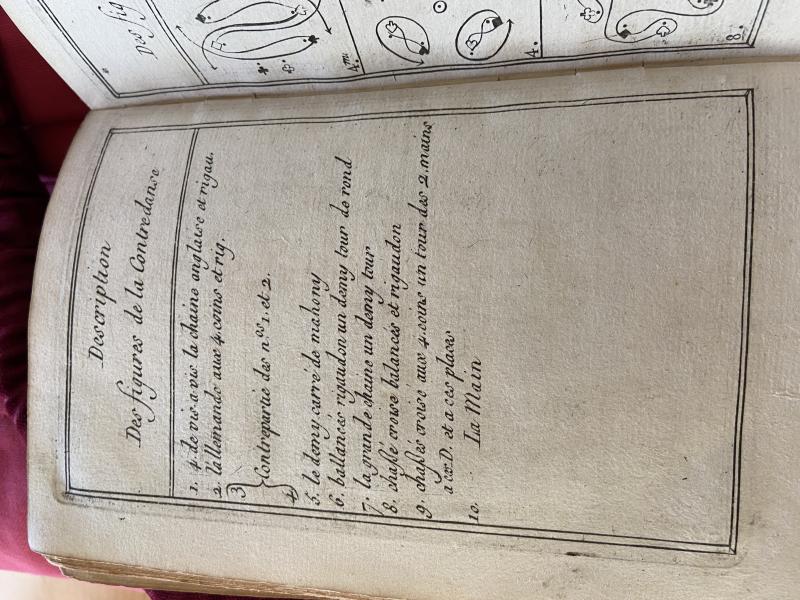 Description
Des figures de la Contredanse
1. 4. de vis-a-vis la chaine anglaise et rigau.
2. lallemande aux 4. coins et rig.
3 } Contrepartie des n.os 1. et 2.
4
5. le demy carré de mahony
6. ballancés rigaudon un demy tour de rond
7. la grande chaine un demy tour
8. chassé croisé bilancés et rigaudon
9. chassés croisé aux 4. coins un tour des 2. mains
a D. et a ces places
10. La Main
Des fig
4.me
4.
8.